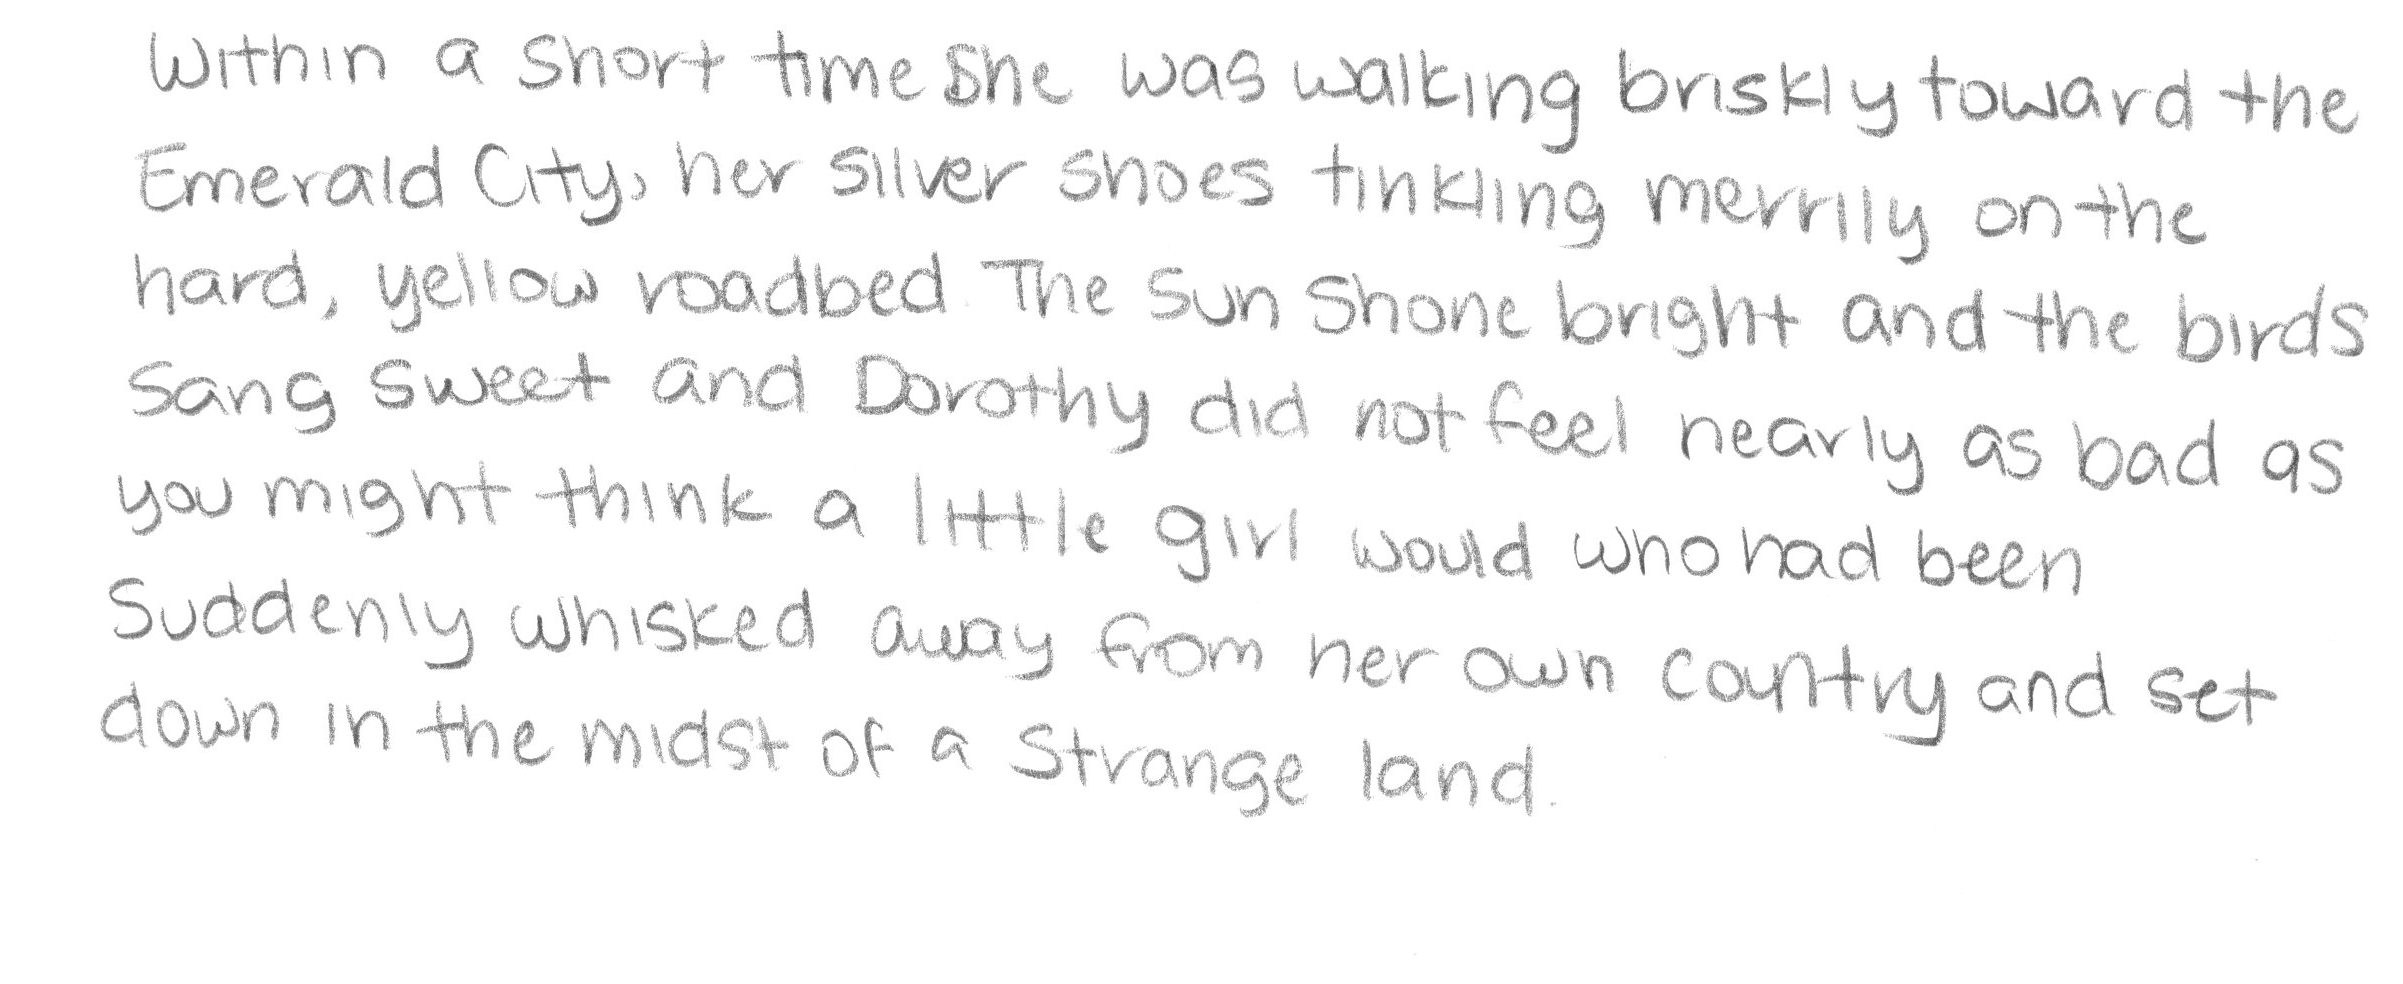 Within a short time she was walking briskly toward the
Emerald City, her silver shoes tinkling merrily on the
hard, yellow roadbed. The sun shone bright and the birds
sang sweet and Dorothy did not feel nearly as bad as
you might think a little girl would who had been
suddenly whisked away from her own country and set
down in the midst of a strange land.